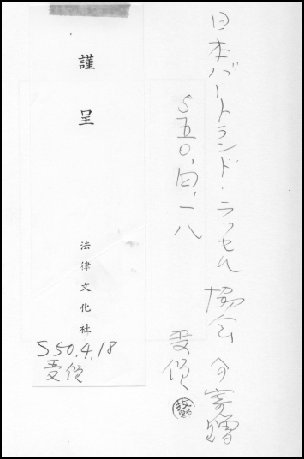 日本バートランド・ラッセル協会ヨリ寄贈
S五〇、四、一八
受領
謹呈
法律文化社
S50.4.18
受領